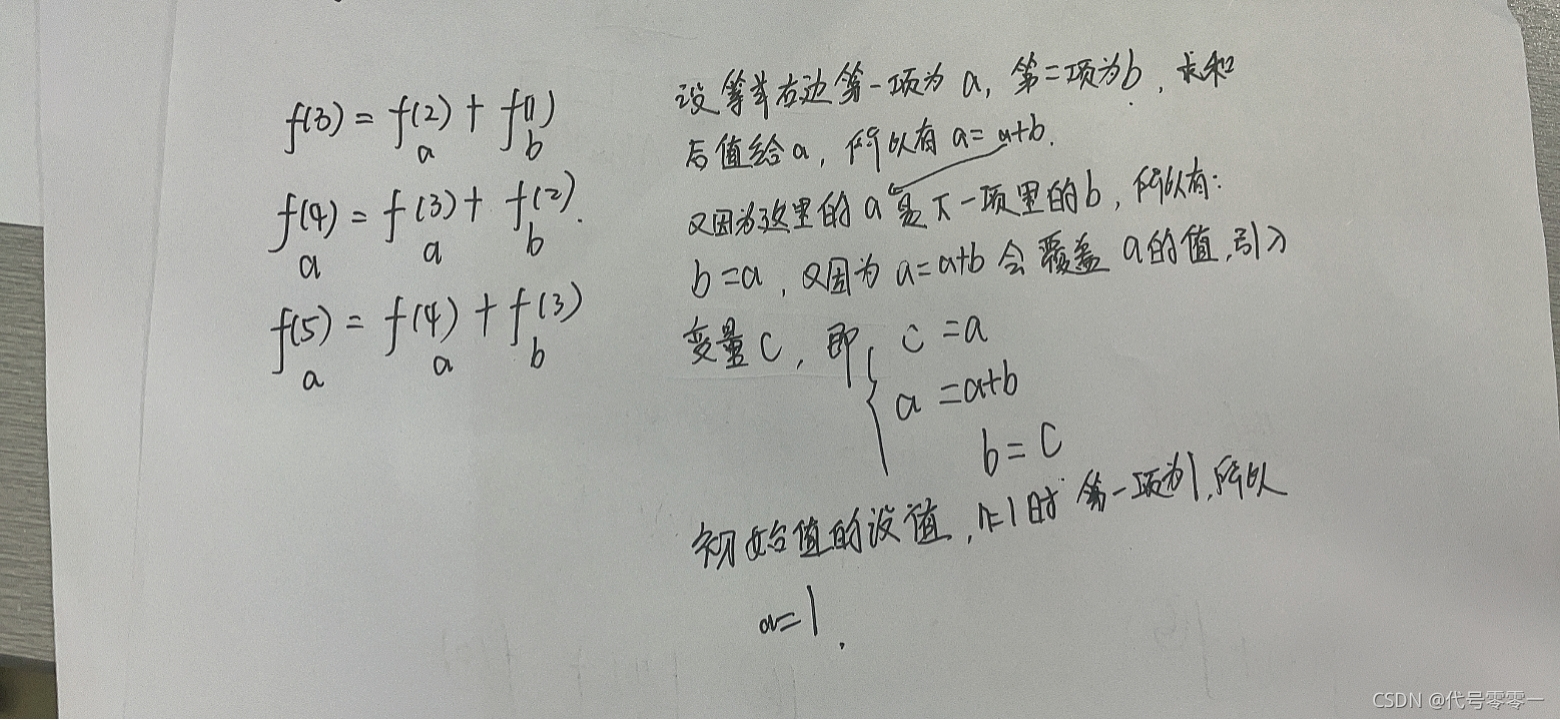 f(3) = f(2) + f(1)
a b
f(4) = f(3) + f(2).
a a b
f(5) = f(4) + f(3)
a a b
设等号右边第一项为 a, 第二项为b, 求和
后值给a, 所以有 a= a+b.
又因为这里的 a 是下一项里的b, 所以有:
b=a, 又因为 a=a+b 会覆盖 a的值,引入
变量C, 即 c =a
a =a+b
b= C
初始值的设值, n=1时 第一项为1,所以
a=1.
CSDN @代号零零一